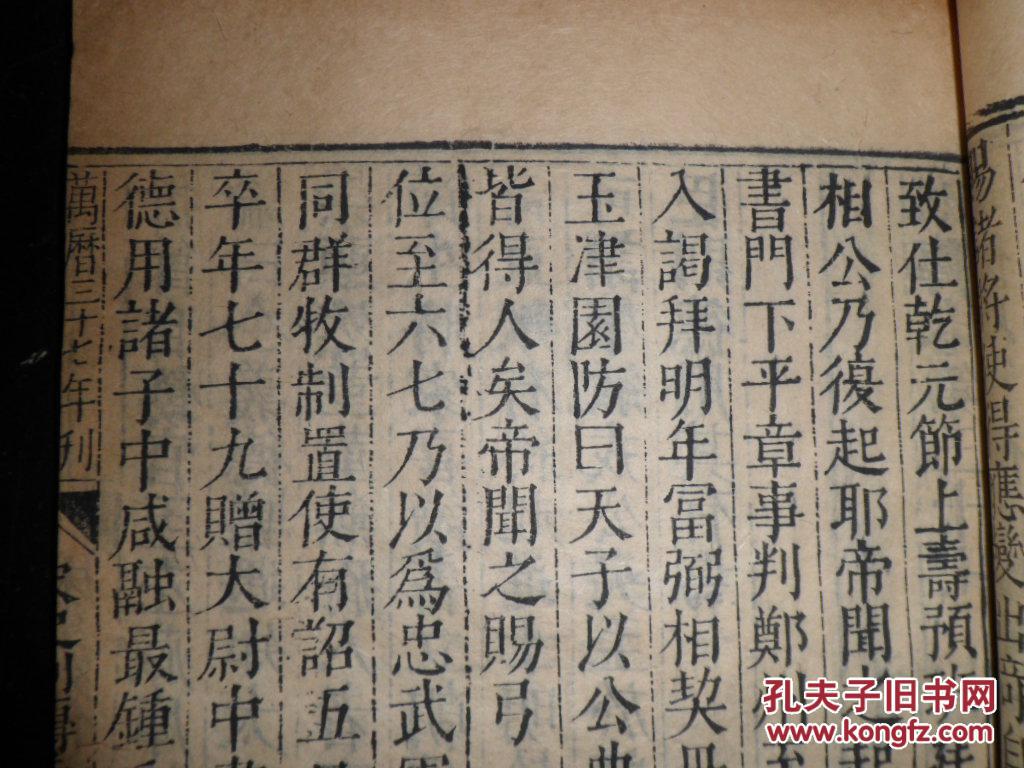 賜諸將使得應變出奇自
致仕乾元節上壽預
相公乃復起耶帝聞之起
書門下平章事判鄭州至
入謁拜明年富弼相契丹
玉津園防曰天子以公典
皆得人矣帝聞之賜弓
位至六七乃以爲忠武軍
同群牧制置使有詔五
卒年七十九贈大尉中
德用諸子中咸融最鍾
萬曆三十七年刊
宋史列傳
孔夫子旧书网
www.kongfz.com